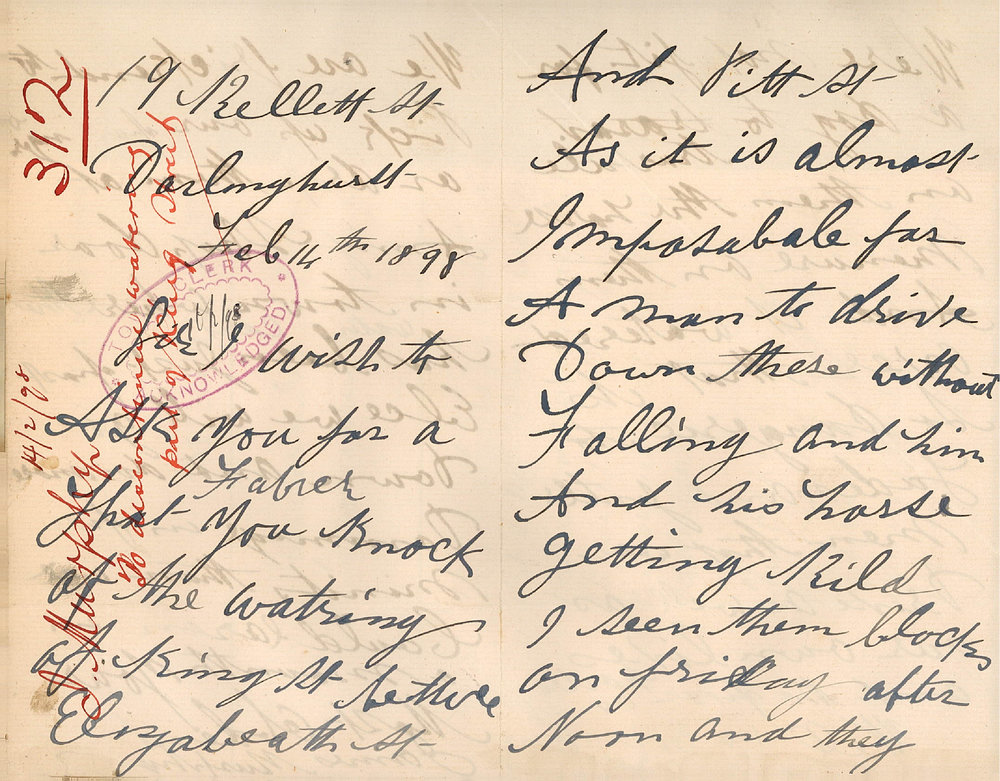 312
19 Kellett St
Darlinghurst
Feb 14th 1898
TOWN CLERK
ACKNOWLEDGED
Sir I wish to
Ask you for a
Fabrer
that you knock
of the watring
of King St bettwe
Elizabeath St
14/2/98
J. Murphy
To discontinue watering
part of King Street
And Pitt St
As it is almost
Imposabale for
A man to drive
Down these without
Falling and him
And his horse
getting Kild
I seen them blocks
on friday after
Noon and they